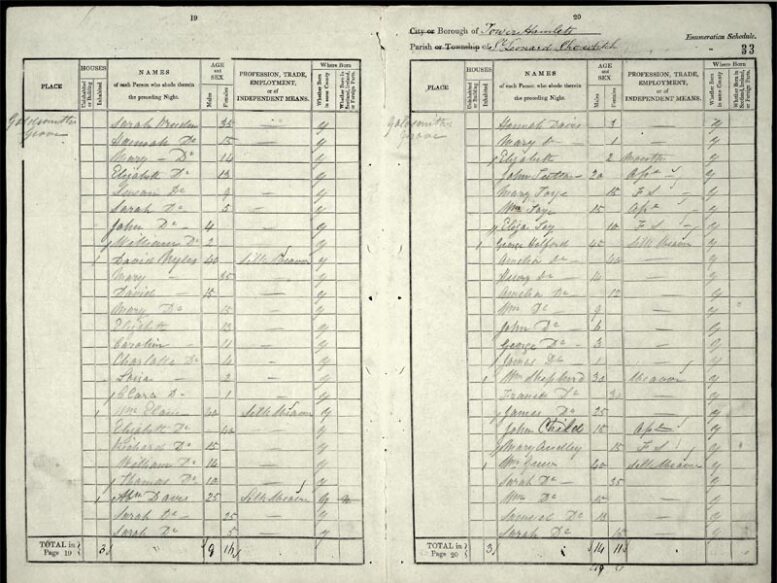 19
PLACE
HOUSES
Uninhabited or Building
Inhabited
NAMES
of each Person who abode therein the preceding Night.
AGE and SEX
Males
Females
PROFESSION, TRADE, EMPLOYMENT, or of INDEPENDENT MEANS.
Where Born
Whether Born in same County
Whether Born in Scotland, Ireland, or Foreign Parts.
Goldsmiths Grove Sarah 35 — y
Hannah Do 15 — y
Mary — Do 14 — y
Elizabth Do 13 — y
Susan Do 9 — y
Sarah Do 5 — y
John Do 4 — y
William Do 2 — y
1 David 40 Silk Weaver y
Mary — 35 — y
David — 15 — y
Mary Do 15 — y
Elizabth 13 — y
Caroline — 11 — y
Charlotte Do 4 — y
2 — y
Clara D — 1 — y
1 Wm 30 Silk Weaver y
Elizabth Do — 40 — y
Richard Do 15 — y
William Do 14 — y
Thomas Do 10 — y
1 Davis 25 Silk Weaver
Sarah Do — 25 — y
Sarah Do 5 — y
TOTAL in Page 19 3 9 16
20
City or Borough of Tower Hamlets
Enumeration Schedule.
Parish or Township of St Leonard Shoreditch
33
PLACE
HOUSES
Uninhabited or Building
Inhabited
NAMES
of each Person who abode therein the preceding Night.
AGE and SEX
Males
Females
PROFESSION, TRADE, EMPLOYMENT, or of INDEPENDENT MEANS.
Where Born
Whether Born in same County
Whether Born in Scotland, Ireland, or Foreign Parts.
Goldsmiths Grove Hannah Davis 1 y
Mary D — 1 — y
Elizabeth 2 Months y
John 20 Ap y
Mary 15 F S y
Wm 15 Ap y
Eliza 10 F S y
1 George 45 Silk Weaver y
Amelia Do — 40 — y
Henry Do — 14 — y
Amelia Do — 12 — y
Wm Do 9 — y
John Do — 6 — y
George Do — 3 — y
James Do — 1 — y
1 Wm Shepherd 30 Weaver y
Frances Do 30 — y
James Do 25 — y
John Child 15 Ap y
Mary Audley 15 F S y
1 Wm 40 Silk Weaver y
Sarah Do — 35 — y
Wm Do — y
Samuel Do — y
Sarah Do y
TOTAL in Page 20 3 14 11